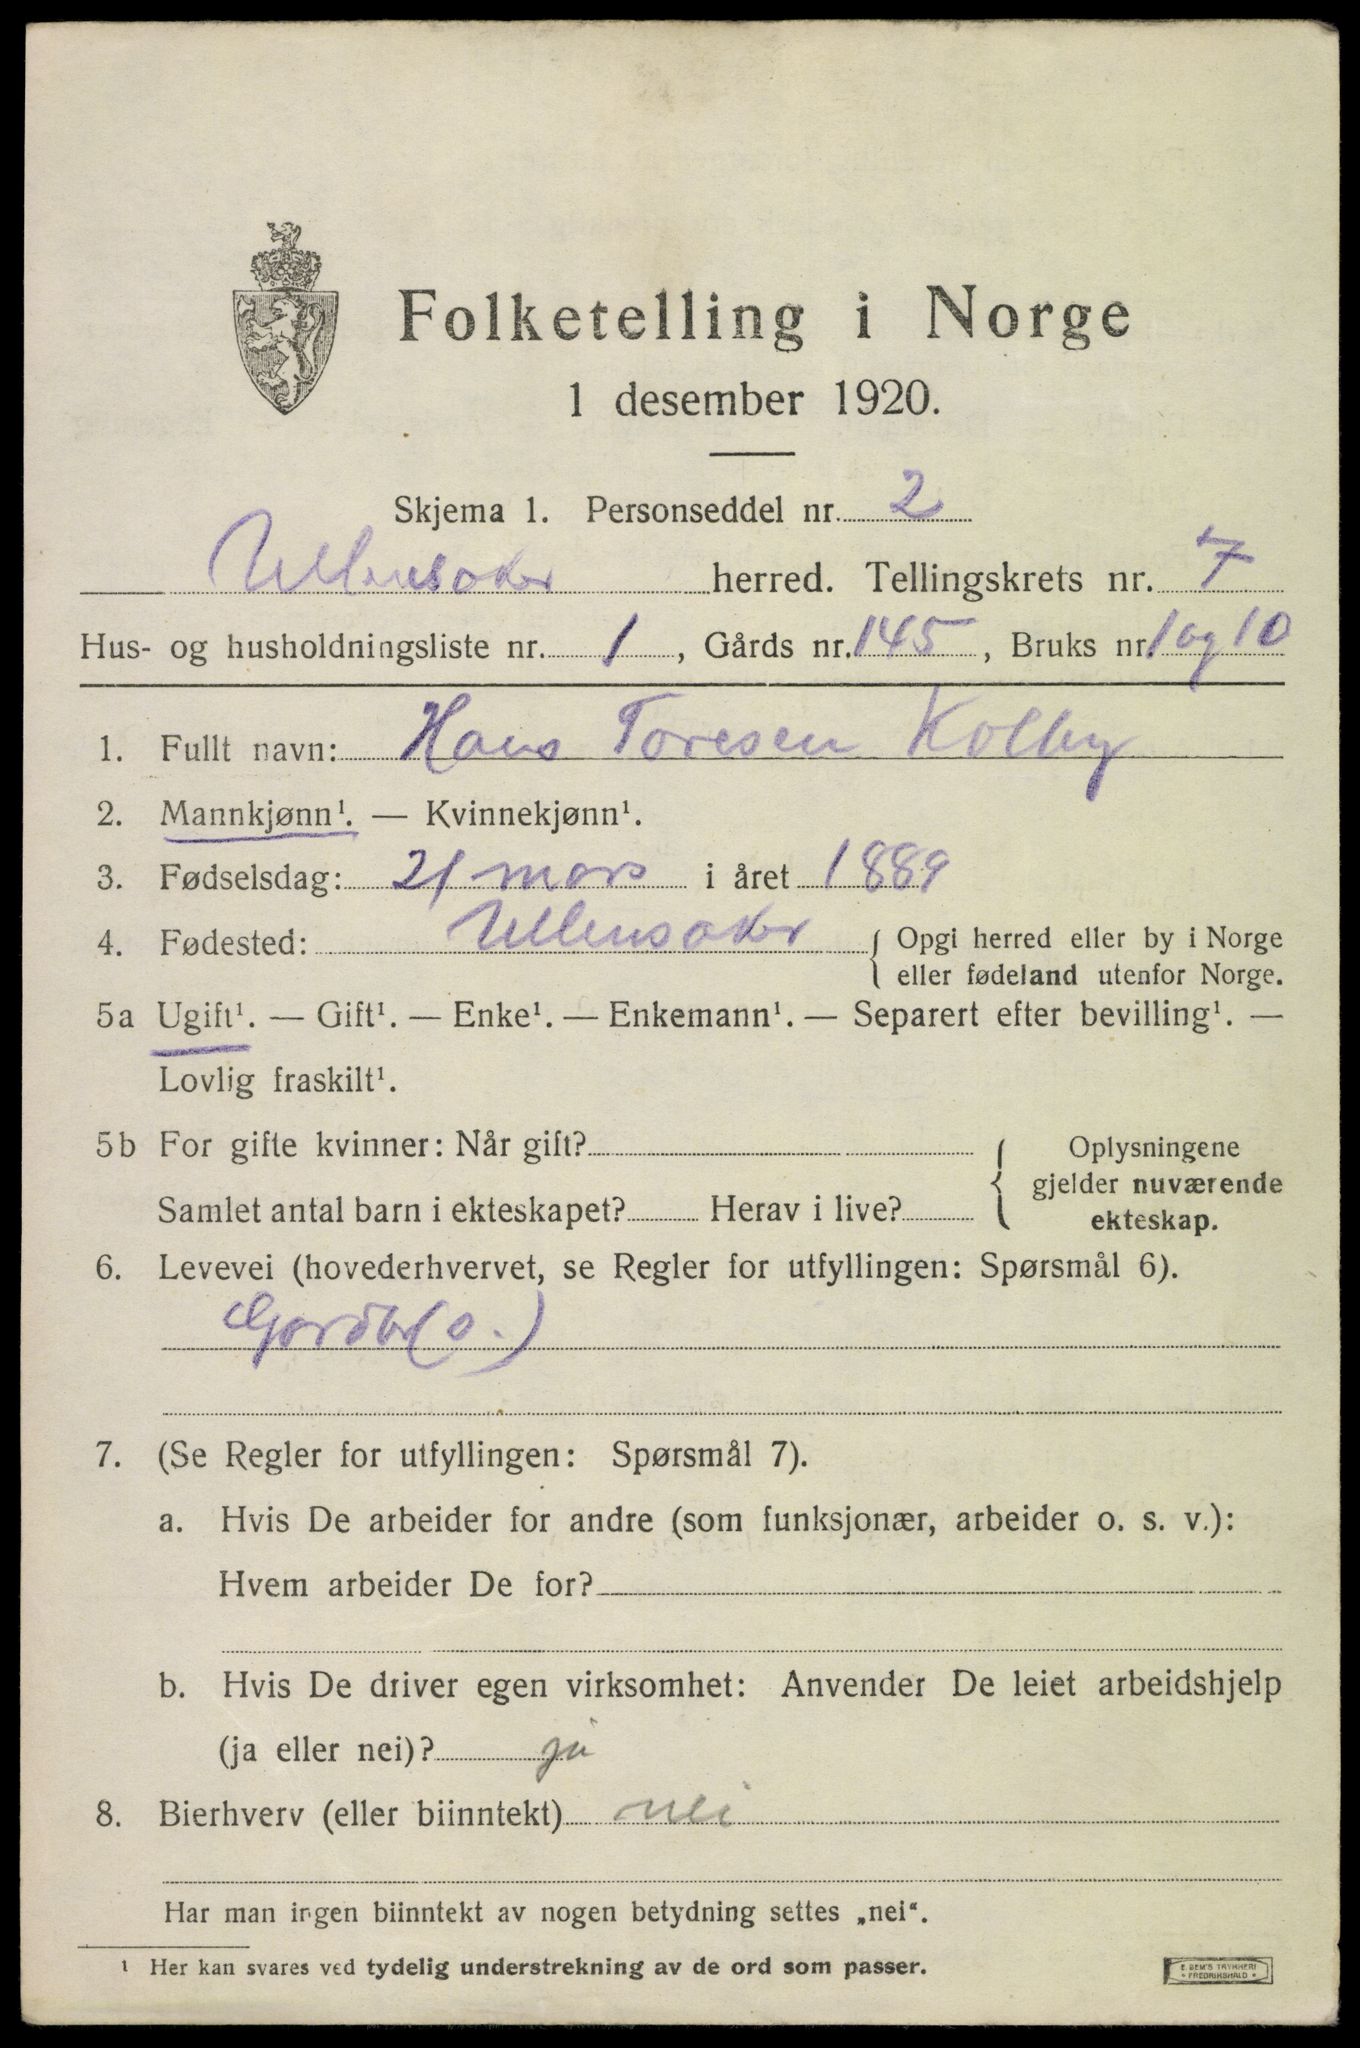 Folketelling i Norge
1 desember 1920.
Skjema 1. Personseddel nr. 2
Ullensaker herred. Tellingskrets nr. 7
Hus- og husholdningsliste nr. 1, Gårds nr. 145, Bruks nr. 1 og 10
1. Fullt navn: Hans Toresen Kolby
2. Mannkjønn¹. — Kvinnekjønn¹.
3. Fødselsdag: 21 mars i året 1889
4. Fødested: Ullensaker { Opgi herred eller by i Norge
eller fødeland utenfor Norge.
5a Ugift¹. — Gift¹. — Enke¹. — Enkemann¹. — Separert efter bevilling¹. —
Lovlig fraskilt¹.
5b For gifte kvinner: Når gift?
Samlet antal barn i ekteskapet? Herav i live?
{ Oplysningene
gjelder nuværende
ekteskap.
6. Levevei (hovederhvervet, se Regler for utfyllingen: Spørsmål 6).
Gardbr (s.)
7. (Se Regler for utfyllingen: Spørsmål 7).
a. Hvis De arbeider for andre (som funksjonær, arbeider o. s. v.):
Hvem arbeider De for?
b. Hvis De driver egen virksomhet: Anvender De leiet arbeidshjelp
(ja eller nei)? ja
8. Bierhverv (eller biinntekt) nei
Har man ingen biinntekt av nogen betydning settes „nei“.
¹ Her kan svares ved tydelig understrekning av de ord som passer.
E. SEM'S TRYKKERI
* FREDRIKSHALD *